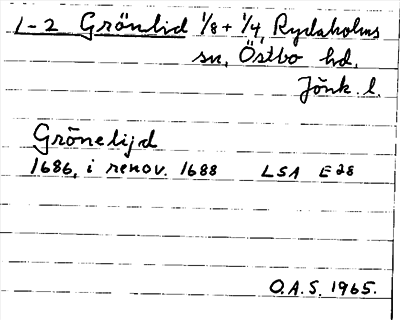 1-2 Grönlid 1/8 + 1/4, Rydaholms
sn, Östbo hd,
Jönk. l.
Grönelijd
1686, i renov. 1688 LSA E28
O.A.S. 1965.